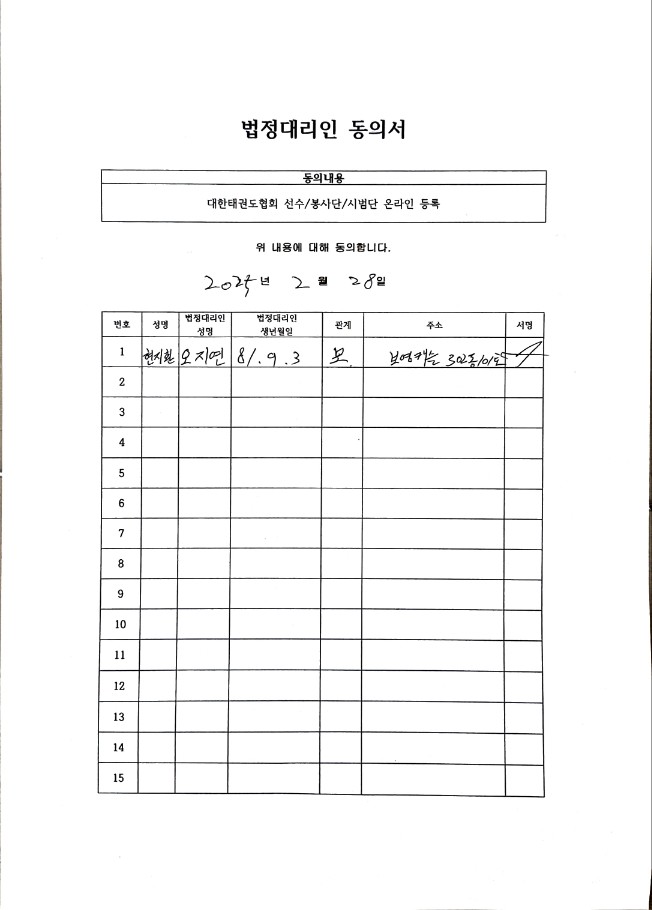 법정대리인 동의서
동의내용
대한태권도협회 선수/봉사단/시범단 온라인 등록
위 내용에 대해 동의합니다.
2025년 2 월 28일
번호 성명 법정대리인 성명 법정대리인 생년월일 관계 주소 서명
1 오지연 81.9.3 모 302동101호
2
3
4
5
6
7
8
9
10
11
12
13
14
15